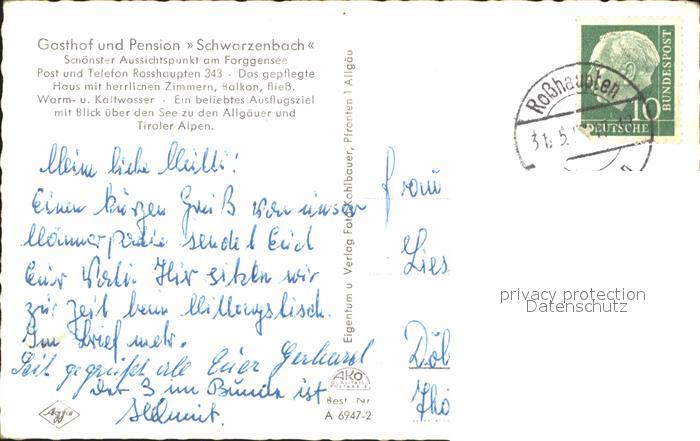 Gasthof und Pension »Schwarzenbach«
Schönster Aussichtspunkt am Forggensee
Post und Telefon Rosshaupten 343 · Das gepflegte
Haus mit herrlichen Zimmern, Balkon, fließ.
Warm- u. Kaltwasser · Ein beliebtes Ausflugsziel
mit Blick über den See zu den Allgäuer und
Tiroler Alpen.
Meine liebe Mutti!
Einen kurzen Gruß von unser
Männerpartie sendet Euch
Euer Vati. Hier sitzen wir
zur Zeit beim Mittagstisch.
Im Brief mehr.
Seit gegrüßt alle Euer Gerhard
Der 3 im Bunde ist
Helmut.
Eigentum u. Verlag Foto Kohlbauer, Pfronten 1 Allgäu
AKO
Best.-Nr
A 6947-2
Agfa
BUNDESPOST
10
DEUTSCHE
Roßhaupten
31. 5.
Frau
Lies
Döl
Thü
privacy protection
Datenschutz